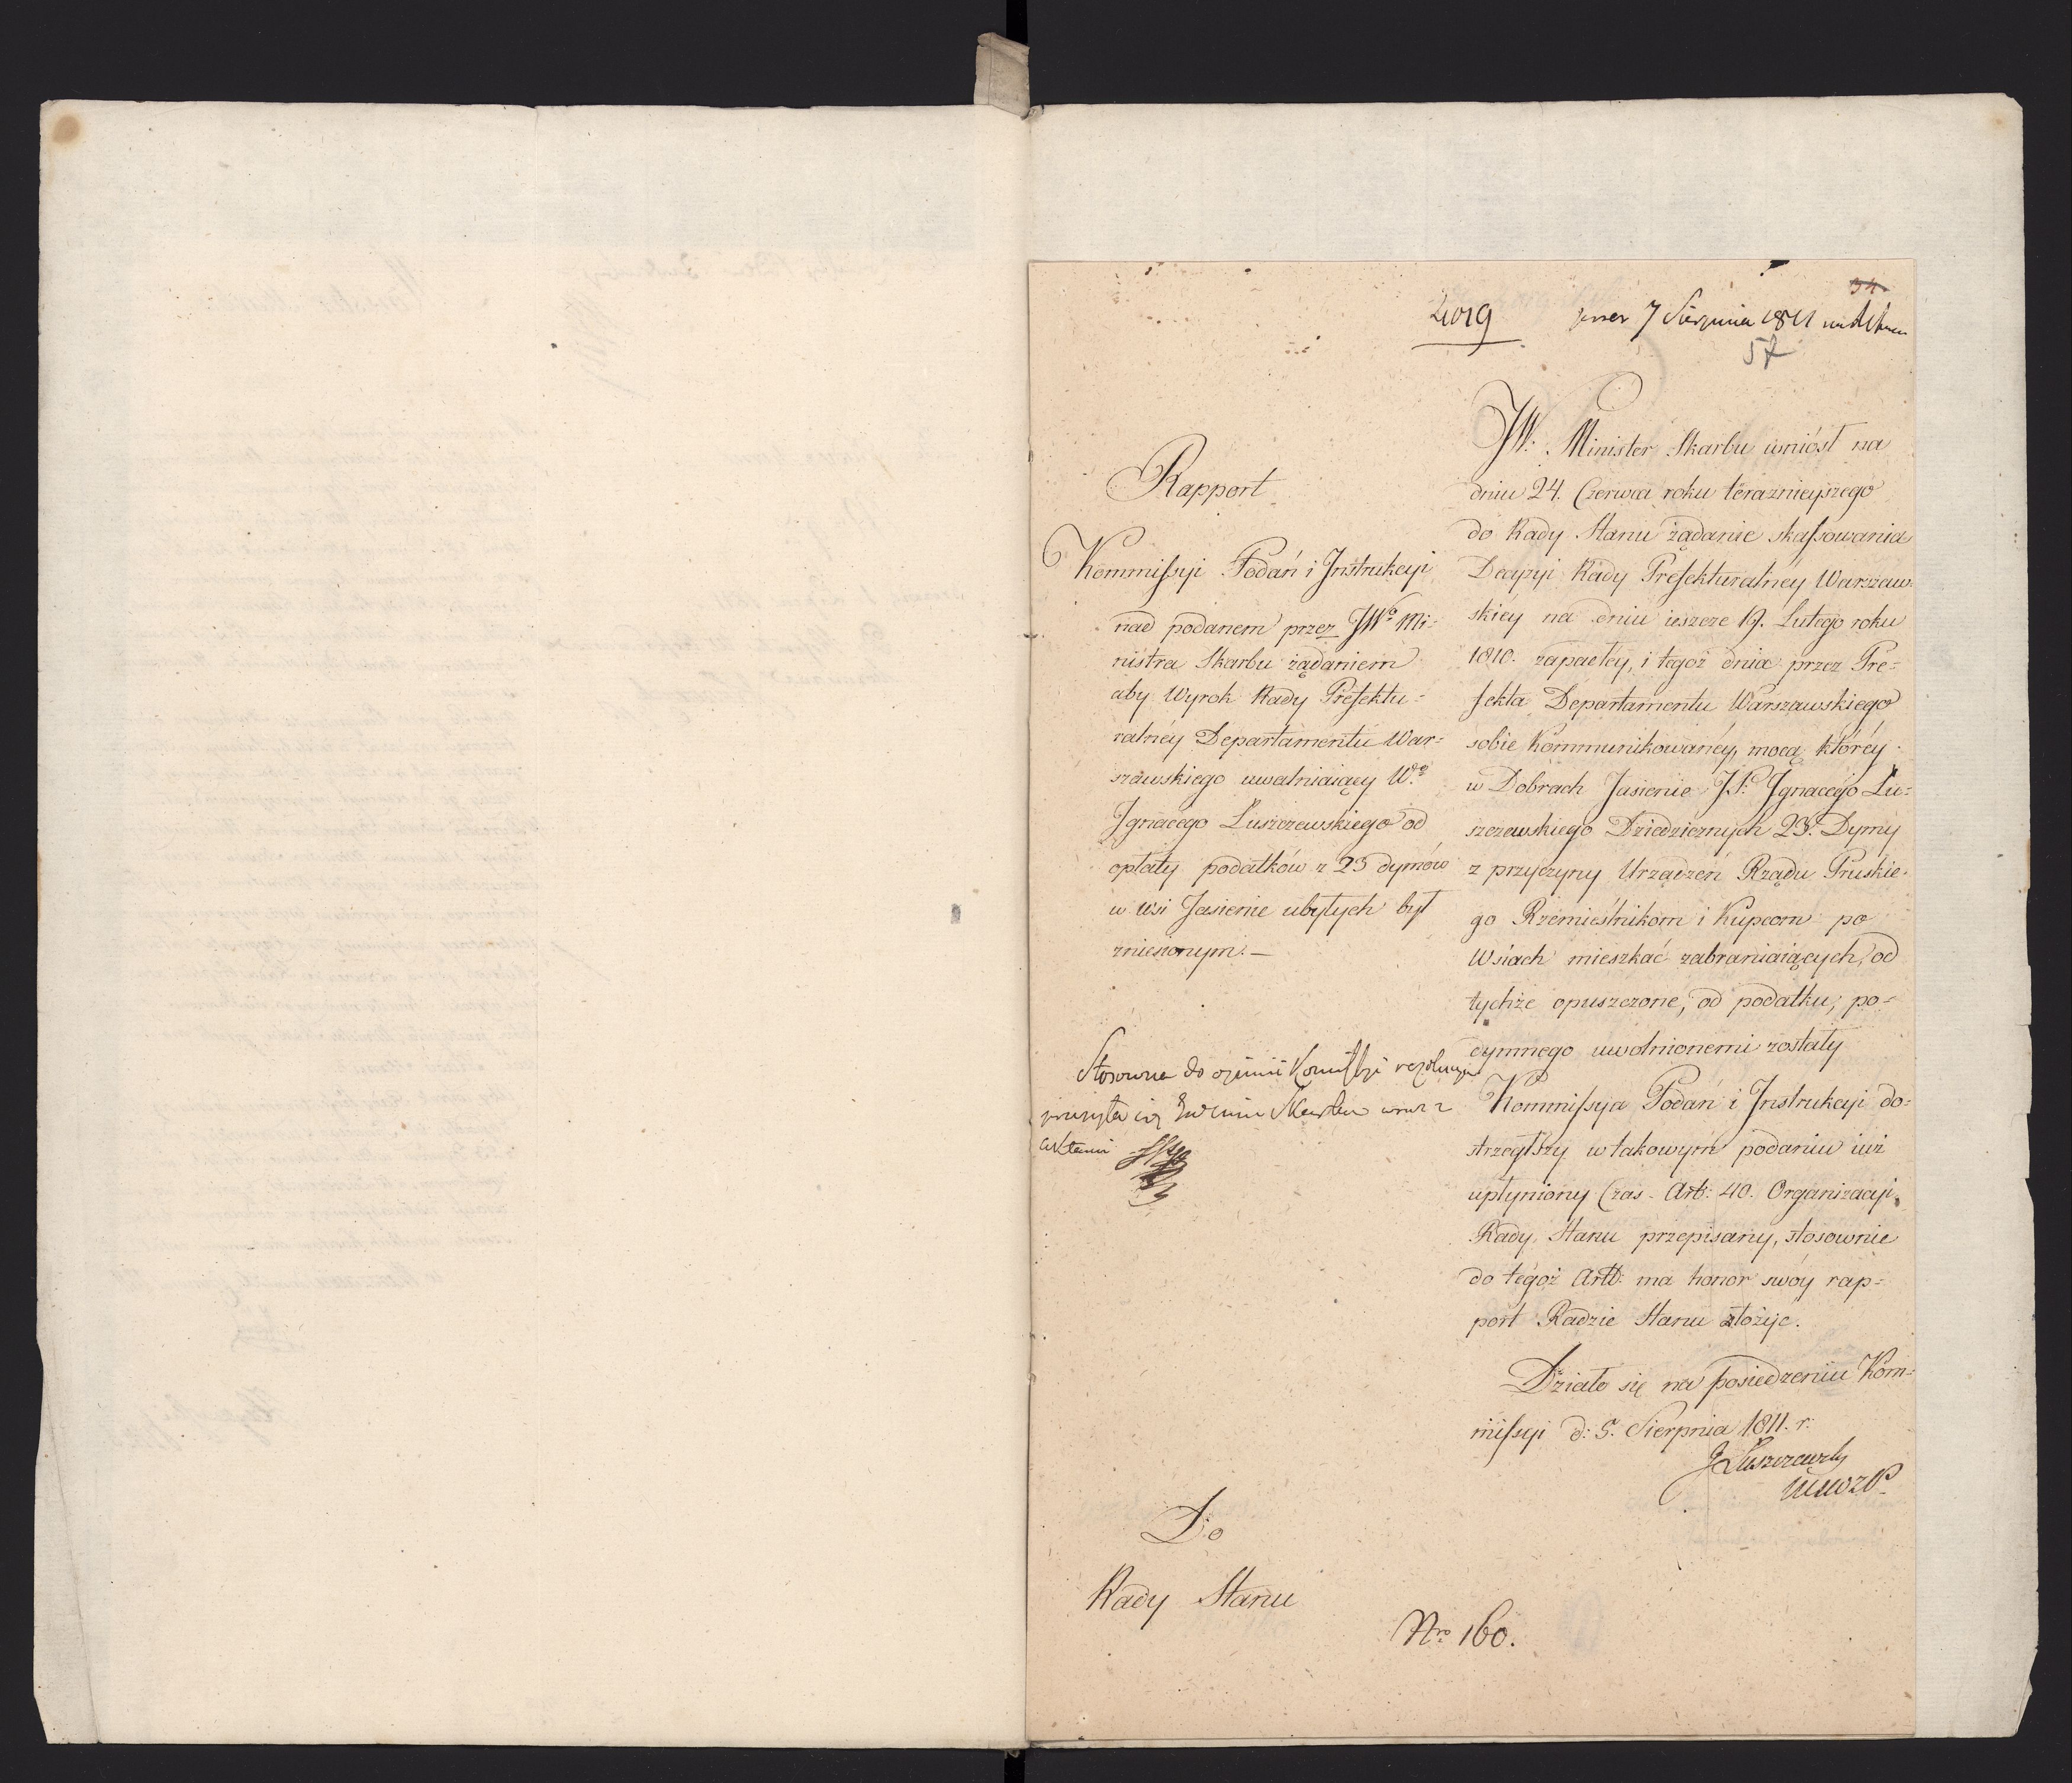 4019
7 Sierpnia 1811
34
57
Rapport
Kommissyi Podań i Instrukcyi
nad podanem przez JWo Mi-
nistra Skarbu żądaniem
aby Wyrok Rady Prefektu-
ralnéy Departamentu War-
szawskiego uwalniaiący Wgo
Ignacego Łuszczewskiego od
opłaty podatków z 23 dymów
w Wsi Jasienie ubyłych był
zniesionym. —
Stosownie do opinii Komissyi rezolucya
przesyła się Skarbu wraz z
aktami
Do
Rady Stanu
JW. Minister Skarbu wniósł na
dniu 24. Czerwca roku teraznieyszego
do Rady Stanu żądanie skassowania
Decyzyi Rady Prefekturalnéy Warszaw-
skiéy na dniu ieszcze 19. Lutego roku
1810. zapadłey, i tegoż dnia przez Pre-
fekta Departamentu Warszawskiego
sobie kommunikowanéy, mocą któréy
w Dobrach Jasienie JP. Ignacego Łu-
szczewskiego Dziedzicznych 23. Dymy
z przyczyny Urządzeń Rządu Pruskie-
go Rzemieślnikom i Kupcom po
Wsiach mieszkać zabraniaiących, od
tychże opuszczone, od podatku, po-
dymnego uwolnionemi zostały
Kommissya Podań i Instrukcyi do-
strzegłszy w takowym podaniu iuż
upłyniony Czas Art: 40. Organizacyi
Rady Stanu przepisany, stosownie
do tegoż Artt: ma honor swóy rap-
port Radzie Stanu złożyc.
Działo się na posiedzeniu Kom-
missyi d: 5. Sierpnia 1811. r.
J Łuszczewski
Nro 160.